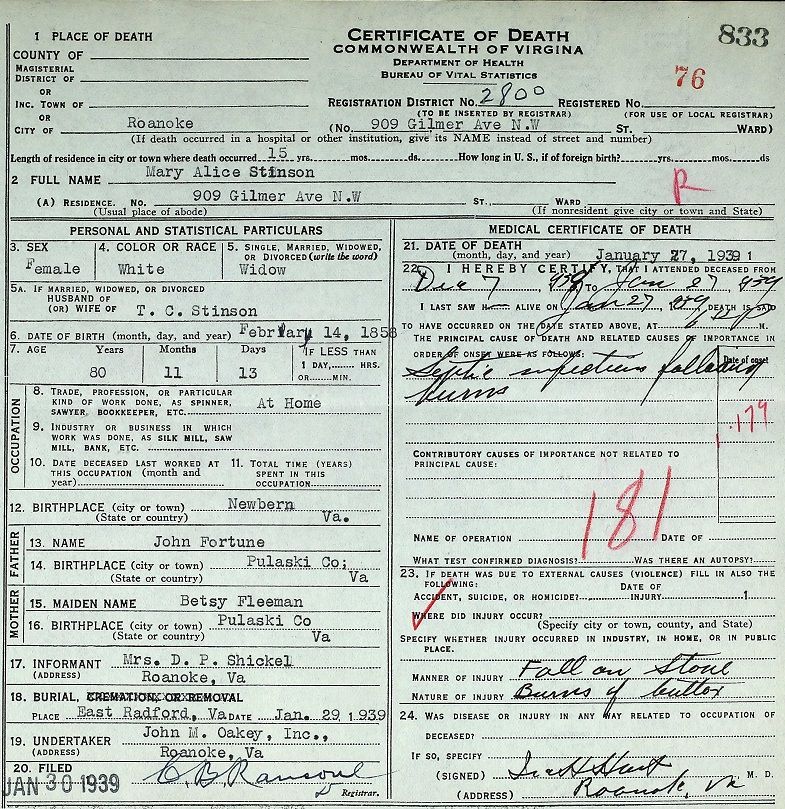 833
CERTIFICATE OF DEATH
COMMONWEALTH OF VIRGINA
DEPARTMENT OF HEALTH
BUREAU OF VITAL STATISTICS
1 PLACE OF DEATH
COUNTY OF
MAGISTERIAL
DISTRICT OF
OR
INC. TOWN OF
OR
CITY OF Roanoke
76
REGISTRATION DISTRICT NO. 2800 REGISTERED NO.
(TO BE INSERTED BY REGISTRAR) (FOR USE OF LOCAL REGISTRAR)
(NO. 909 Gilmer Ave N.W ST. WARD)
(If death occurred in a hospital or other institution, give its NAME instead of street and number)
Length of residence in city or town where death occurred 15 yrs. mos. ds. How long in U. S., if of foreign birth? yrs. mos. ds
2 FULL NAME Mary Alice Stinson
R
(A) RESIDENCE. NO. 909 Gilmer Ave N.W ST., WARD
(Usual place of abode) (If nonresident give city or town and State)
PERSONAL AND STATISTICAL PARTICULARS
3. SEX
Female
4. COLOR OR RACE
White
5. SINGLE, MARRIED, WIDOWED,
OR DIVORCED (write the word)
Widow
5A. IF MARRIED, WIDOWED, OR DIVORCED
HUSBAND OF
(OR) WIFE OF T. C. Stinson
6. DATE OF BIRTH (month, day, and year) February 14, 1858
7. AGE Years Months Days IF LESS THAN
1 DAY, HRS.
OR MIN.
80 11 13
OCCUPATION
8. TRADE, PROFESSION, OR PARTICULAR
KIND OF WORK DONE, AS SPINNER,
SAWYER, BOOKKEEPER, ETC. At Home
9. INDUSTRY OR BUSINESS IN WHICH
WORK WAS DONE, AS SILK MILL, SAW
MILL, BANK, ETC.
10. DATE DECEASED LAST WORKED AT
THIS OCCUPATION (month and
year)
11. TOTAL TIME (YEARS)
SPENT IN THIS
OCCUPATION
12. BIRTHPLACE (city or town) Newbern
(State or country) Va.
FATHER
13. NAME John Fortune
14. BIRTHPLACE (city or town) Pulaski Co;
(State or country) Va
MOTHER
15. MAIDEN NAME Betsy Fleeman
16. BIRTHPLACE (city or town) Pulaski Co
(State or country) Va
17. INFORMANT Mrs. D. P. Shickel
(ADDRESS) Roanoke, Va
18. BURIAL, CREMATION, OR REMOVAL
PLACE East Radford, Va DATE Jan. 29 1939
19. UNDERTAKER John M. Oakey, Inc.,
(ADDRESS) Roanoke, Va
20. FILED
JAN 30 1939
Registrar.
MEDICAL CERTIFICATE OF DEATH
21. DATE OF DEATH
(month, day, and year) January 27, 1939 1
22. I HEREBY CERTIFY, THAT I ATTENDED DECEASED FROM
Dec 7, 1938 TO Jan 27, 1939
I LAST SAW H ALIVE ON Jan 27 1939 DEATH IS SAID
TO HAVE OCCURRED ON THE DATE STATED ABOVE, AT H.
THE PRINCIPAL CAUSE OF DEATH AND RELATED CAUSES OF IMPORTANCE IN
ORDER OF ONSET WERE AS FOLLOWS: Date of onset
Septic infections following
burns
179
CONTRIBUTORY CAUSES OF IMPORTANCE NOT RELATED TO
PRINCIPAL CAUSE:
181
NAME OF OPERATION DATE OF
WHAT TEST CONFIRMED DIAGNOSIS? WAS THERE AN AUTOPSY?
23. IF DEATH WAS DUE TO EXTERNAL CAUSES (VIOLENCE) FILL IN ALSO THE
FOLLOWING:
ACCIDENT, SUICIDE, OR HOMICIDE? DATE OF INJURY 1
WHERE DID INJURY OCCUR?
(Specify city or town, county, and State)
SPECIFY WHETHER INJURY OCCURRED IN INDUSTRY, IN HOME, OR IN PUBLIC
PLACE.
MANNER OF INJURY Fall on Stove
NATURE OF INJURY Burns of
24. WAS DISEASE OR INJURY IN ANY WAY RELATED TO OCCUPATION OF
DECEASED?
IF SO, SPECIFY
(SIGNED) M. D.
(ADDRESS) Roanoke, Va